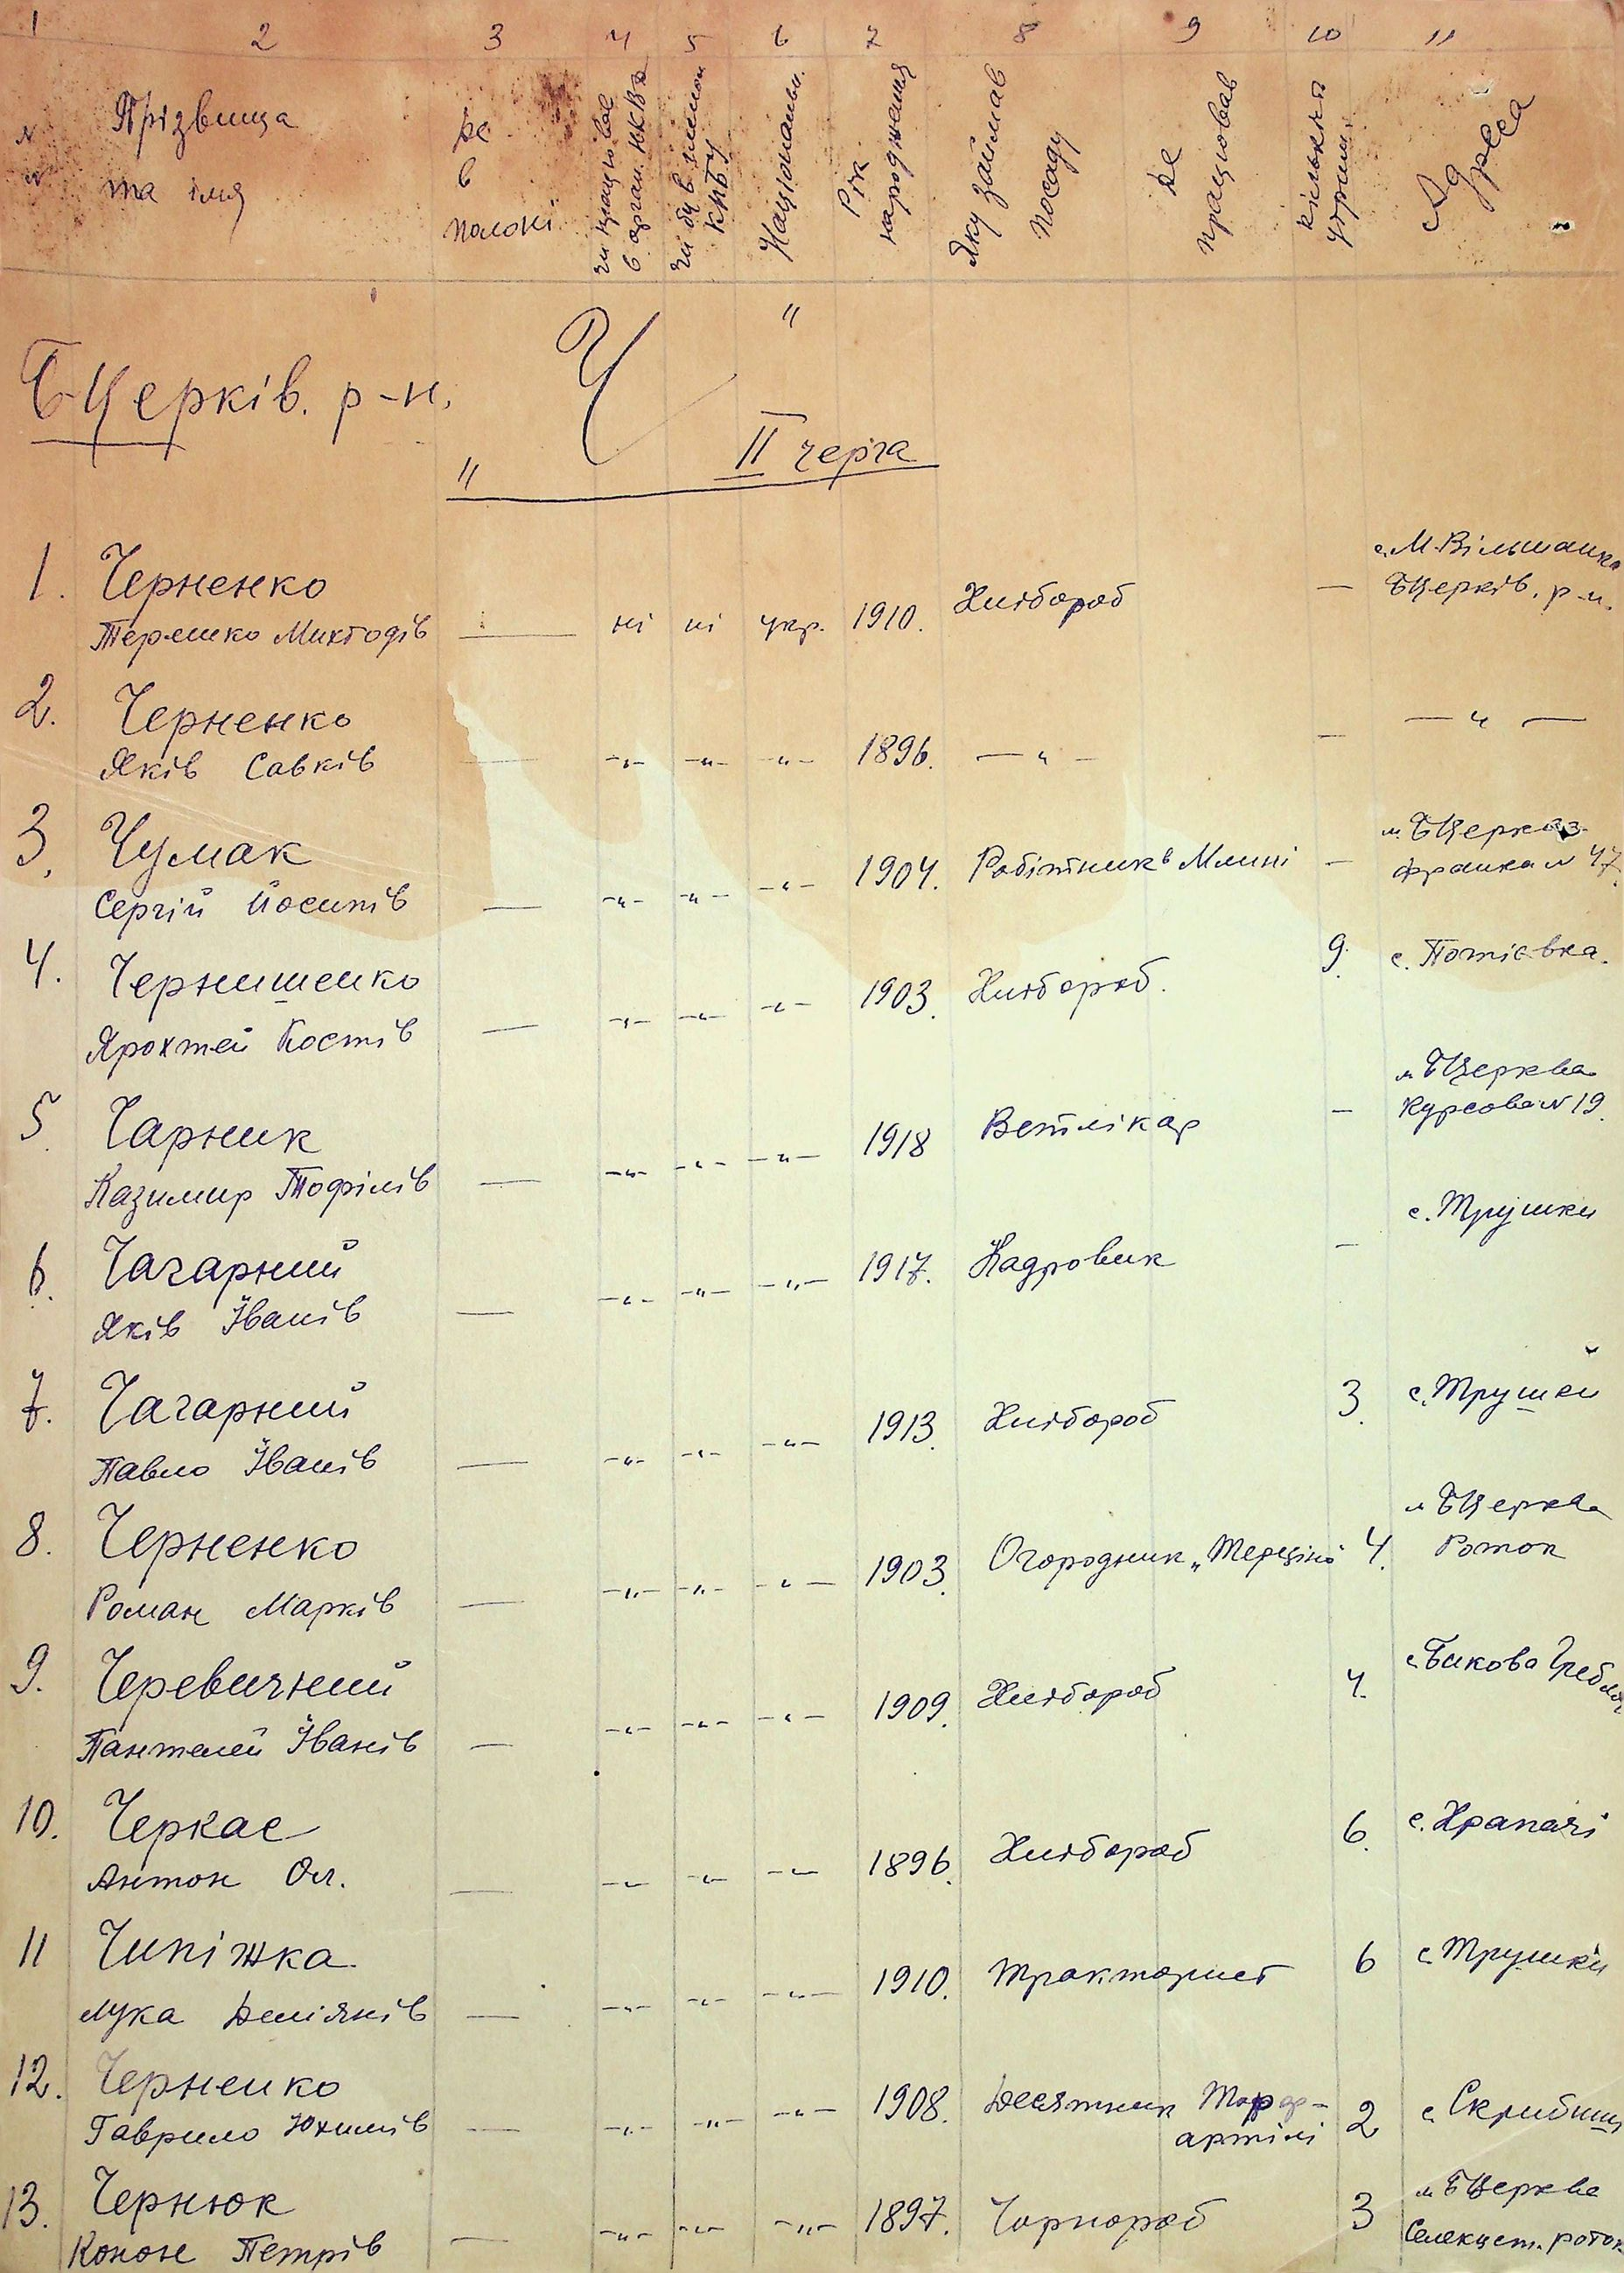 1 2 3 4 5 6 7 8 9 10 11
№ Прізвища та імя
Де в полоні
чи працював в орган. НКВД
чи був членом КПбУ
Національн.
Рік народження
Яку займав посаду
Де працював
кількість утрим.
Адреса
Б-Церків. р-н.
" Ч "
ІІ черга
1. Черненко — ні ні укр. 1910. Хлібороб — с. М. Вільшанка
Терешко Миктодів Б Церків. р-н.
2. Черненко
Яків Савків — -"- -"- -"- 1896. — " — — — " —
3. Чумак м. БЦерква
Сергій Йосипів — -"- -"- -"- 1904. Робітник в Млині — Франка № 47
4. Чернишенко
Ярохтей Костів — -"- -"- -"- 1903. Хлібороб. 9. с. Потіївка.
5. Чарник м. БЦерква
Казимир Тофілів — -"- -"- -"- 1918 Ветлікар — Курсова № 19.
6. Чагарний
Яків Іванів — -"- -"- -"- 1917. Кадровик — с. Трушки
7. Чагарний
Павло Іванів — -"- -"- -"- 1913. Хлібороб 3. с. Трушки
8. Черненко м. БЦерква
Роман Марків — -"- -"- -"- 1903. Огородник 4. Роток
9. Черевичний
Пантелей Іванів — -"- -"- -"- 1909. Хлібороб 4. с. Бикова Гребля
10. Черкас
Антон Ол. — -"- -"- -"- 1896. Хлібороб 6. с. Храпачі
11 Чипіжка
Лука Деміянів — -"- -"- -"- 1910. Тракторист 6 с. Трушки
12. Черненко
Гаврило Юхимів — -"- -"- -"- 1908. Десятник артілі 2 с. Скрибиш
13. Чернюк м. БЦерква
Конон Петрів — -"- -"- -"- 1897. Чорнороб 3 Селекцст. роток